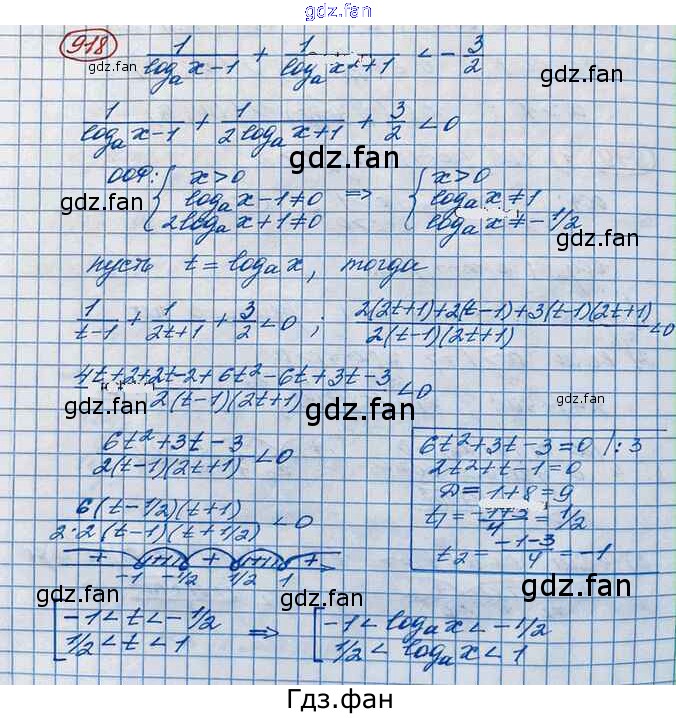 gdz.fan
918 1/(logₐ x-1) + 1/(logₐ x²+1) < -3/2
gdz.fan
gdz.fan
1/(logₐ x-1) + 1/(2logₐ x+1) + 3/2 < 0
gdz.fan
ООФ: { x>0 => { x>0
logₐ x-1≠0 logₐ x≠1
2logₐ x+1≠0 logₐ x≠-1/2
gdz.fan
gdz.fan
пусть t=logₐ x, тогда
1/(t-1) + 1/(2t+1) + 3/2 < 0 ; (2(2t+1)+2(t-1)+3(t-1)(2t+1))/(2(t-1)(2t+1)) < 0
gdz.fan
gdz.fan
(4t+2+2t-2+6t²-6t+3t-3)/(2(t-1)(2t+1)) < 0
gdz.fan
gdz.fan
gdz.fan
(6t²+3t-3)/(2(t-1)(2t+1)) < 0
6t²+3t-3=0 |:3
2t²+t-1=0
D=1+8=9
t₁=(-1+3)/4=1/2
t₂=(-1-3)/4=-1
6(t-1/2)(t+1)/(2·2(t-1)(t+1/2)) < 0
gdz.fan
+ + +
-1 -1/2 1/2 1
gdz.fan
gdz.fan
gdz.fan
[ -1<t<-1/2 => [ -1<logₐ x<-1/2
1/2<t<1 1/2<logₐ x<1
Гдз.фан